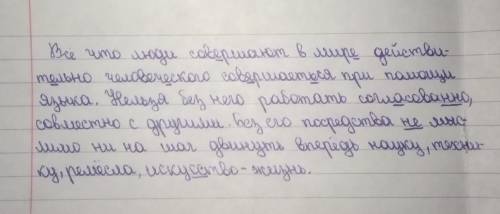 Все что люди совершают в мире действи-
тельно человеческого совершаеться при помощи
языка. Нельзя без него работать согласованно,
совместно с другими. Без его посредства не мыс-
лимо ни на шаг двинуть впередь науку, техни-
ку, ремёсла, искусство-жизнь.